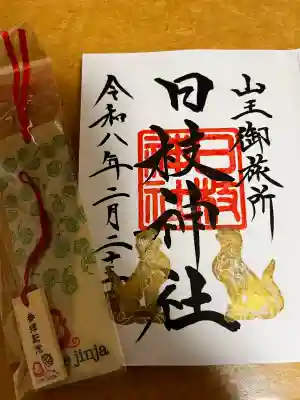 山王御旅所
日枝神社
令和八年二月二十
日枝神社
jinja